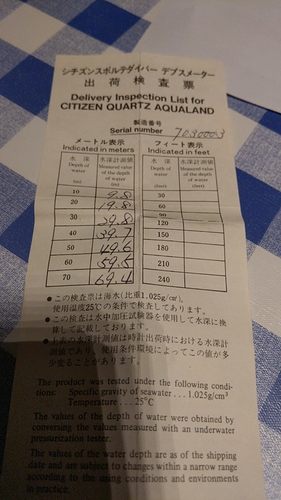 シチズンスポルテダイバー デプスメーター
出荷検査票
Delivery Inspection List for
CITIZEN QUARTZ AQUALAND
製造番号
Serial number 7030003
メートル表示 フィート表示
Indicated in meters Indicated in feet
水深 水深計測値 水深 水深計測値
Depth of water Measured value of the depth of water Depth of water Measured value of the depth of water
(m) (m) (feet) (feet)
10 9.8 30
20 19.8 60
30 29.8 90
40 39.7 120
50 49.6 150
60 59.5 180
70 69.4 210
240
●この検査票は海水(比重1.025g/cm³),
使用温度25℃の条件で検査してあります。
●この検査は水中加圧試験器を使用して水深に換
算して記載しております。
●上表の水深計測値は時計出荷時における水深計
測値であり、使用条件環境によってこの値が多
少変ることがあります。
The product was tested under the following condi-
tions: Specific gravity of seawater...1.025g/cm³
Temperature...25°C
The values of the depth of water were obtained by
converting the values measured with an underwater
pressurization tester.
The values of the water depth are as of the shipping
date and are subject to changes within a narrow range
according to the using conditions and environments
in practice.